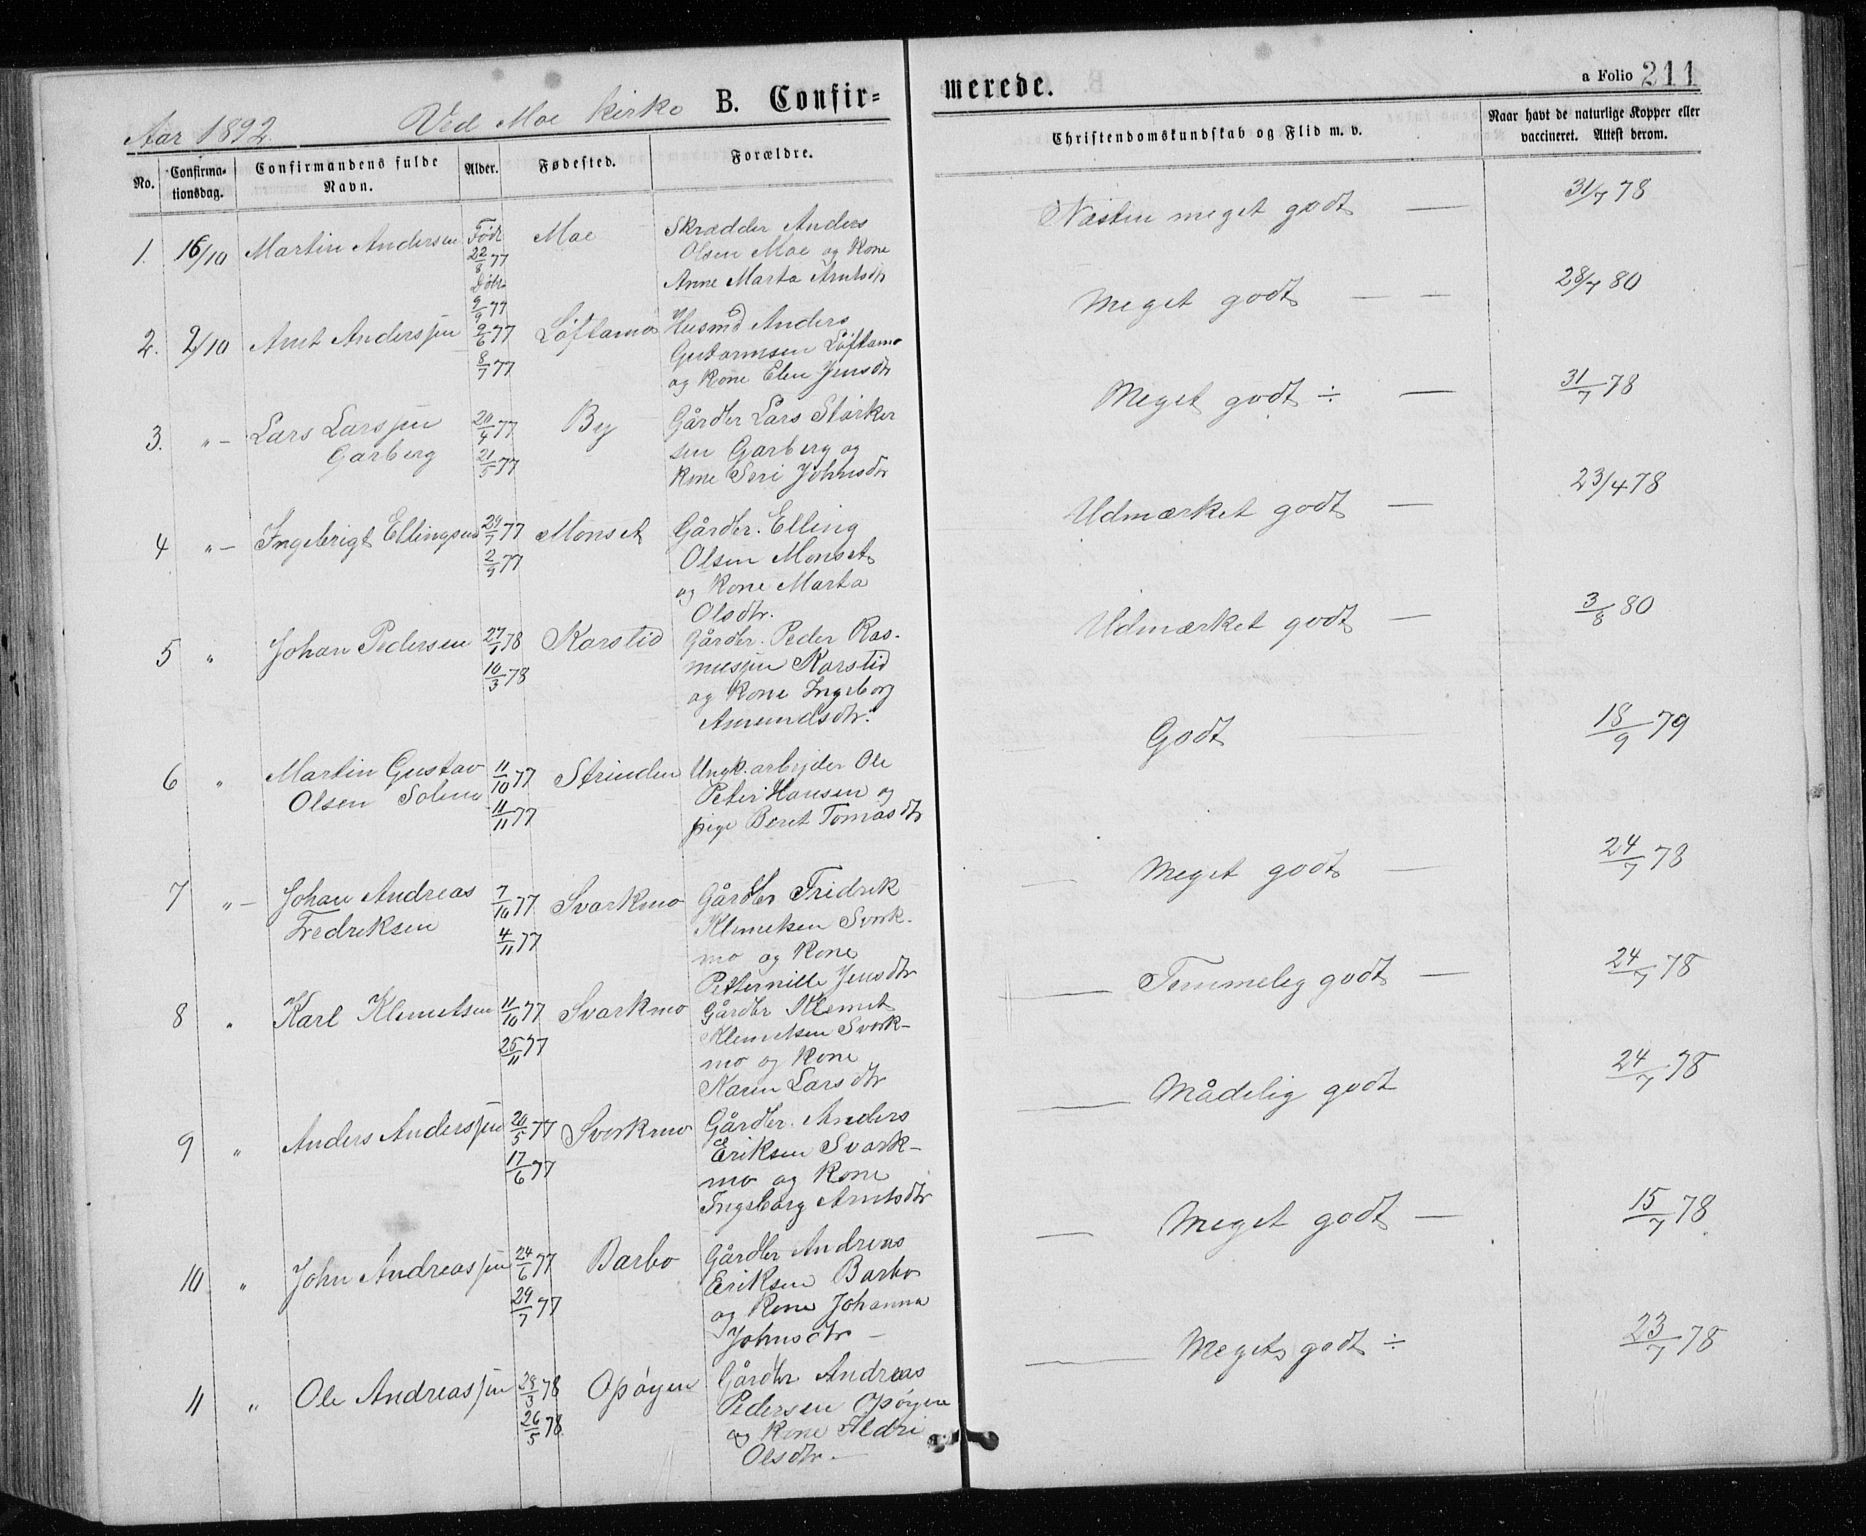 Aar 1892. Ved Moe kirke B. Confir= merede. a Folio 211
No. Confirma-tionsdag. Confirmandens fulde Navn. Alder. Fødested. Forældre. Christendomskundskab og Flid m. v. Naar havt de naturlige Kopper eller vaccineret. Attest derom.
1. 16/10 Martin Andersen Født 22/8 77 Døbt 9/9 77 Moe Skrædder Anders
Olsen Moe og Kone
Anne Marta Arntsdtr
Næsten meget godt — 31/7 78
2. 2/10 Arnt Anderssen 2/6 77 8/7 77 Løftamo Husmd Anders
Løftamo
og Kone Elen Jensdtr
Meget godt — — 28/7 80
3. "— Lars Larssen
Garberg 20/4 77 21/5 77 By Gårdbr Lars Størker
sen Garberg og
Kone Seri Johnsdtr
Meget godt ÷ — 31/7 78
4 "— Ingebrigt Ellingsen 29/7 77 2/9 77 Monset Gårdbr. Elling
Olsen Monset
og Kone Marta
Olsdtr.
Udmærket godt — 23/4 78
5 " Johan Pedersen 27/1 78 10/3 78 Karstid Gårdbr. Peder Ras-
mussen Karstid
og Kone Ingeborg
Amundsdtr.
Udmærket godt — 3/8 80
6 " Martin Gustav
Olsen Solem 11/10 77 11/11 77 Strinden Ungk. arbejder Ole
Peter Hansen og
pige Beret Tomasdtr
Godt — 18/9 79
7 "— Johan Andreas
Fredriksen 7/10 77 4/11 77 Svarkmo Gårdbr Fridrek
Klemetsen Svork-
mo og Kone
Petternille Jensdtr
— Meget godt — 24/7 78
8 " Karl Klemetsen 11/10 77 25/11 77 Svarkmo Gårdbr Klemet
Klemetsen Svork-
mo og Kone
Karen Larsdtr
— Temmelig godt — 24/7 78
9 " Anders Anderssen 20/5 77 17/6 77 Svorkmo Gårdbr. Anders
Eriksen Svork-
mo og Kone
Ingeborg Arntsdtr
— Mådelig godt 24/7 78
10 " John Andreassen 24/6 77 29/7 77 Barbo Gårdbr Andreas
Eriksen Barbo
og Kone Johanna
Johnsdtr —
— Meget godt — 15/7 78
11 " Ole Andreassen 28/3 78 26/5 78 Opøyen Gårdbr Andreas
Pedersen Opøyen
og Kone Aldri
Olsdtr. —
— Meget godt ÷ 23/7 78